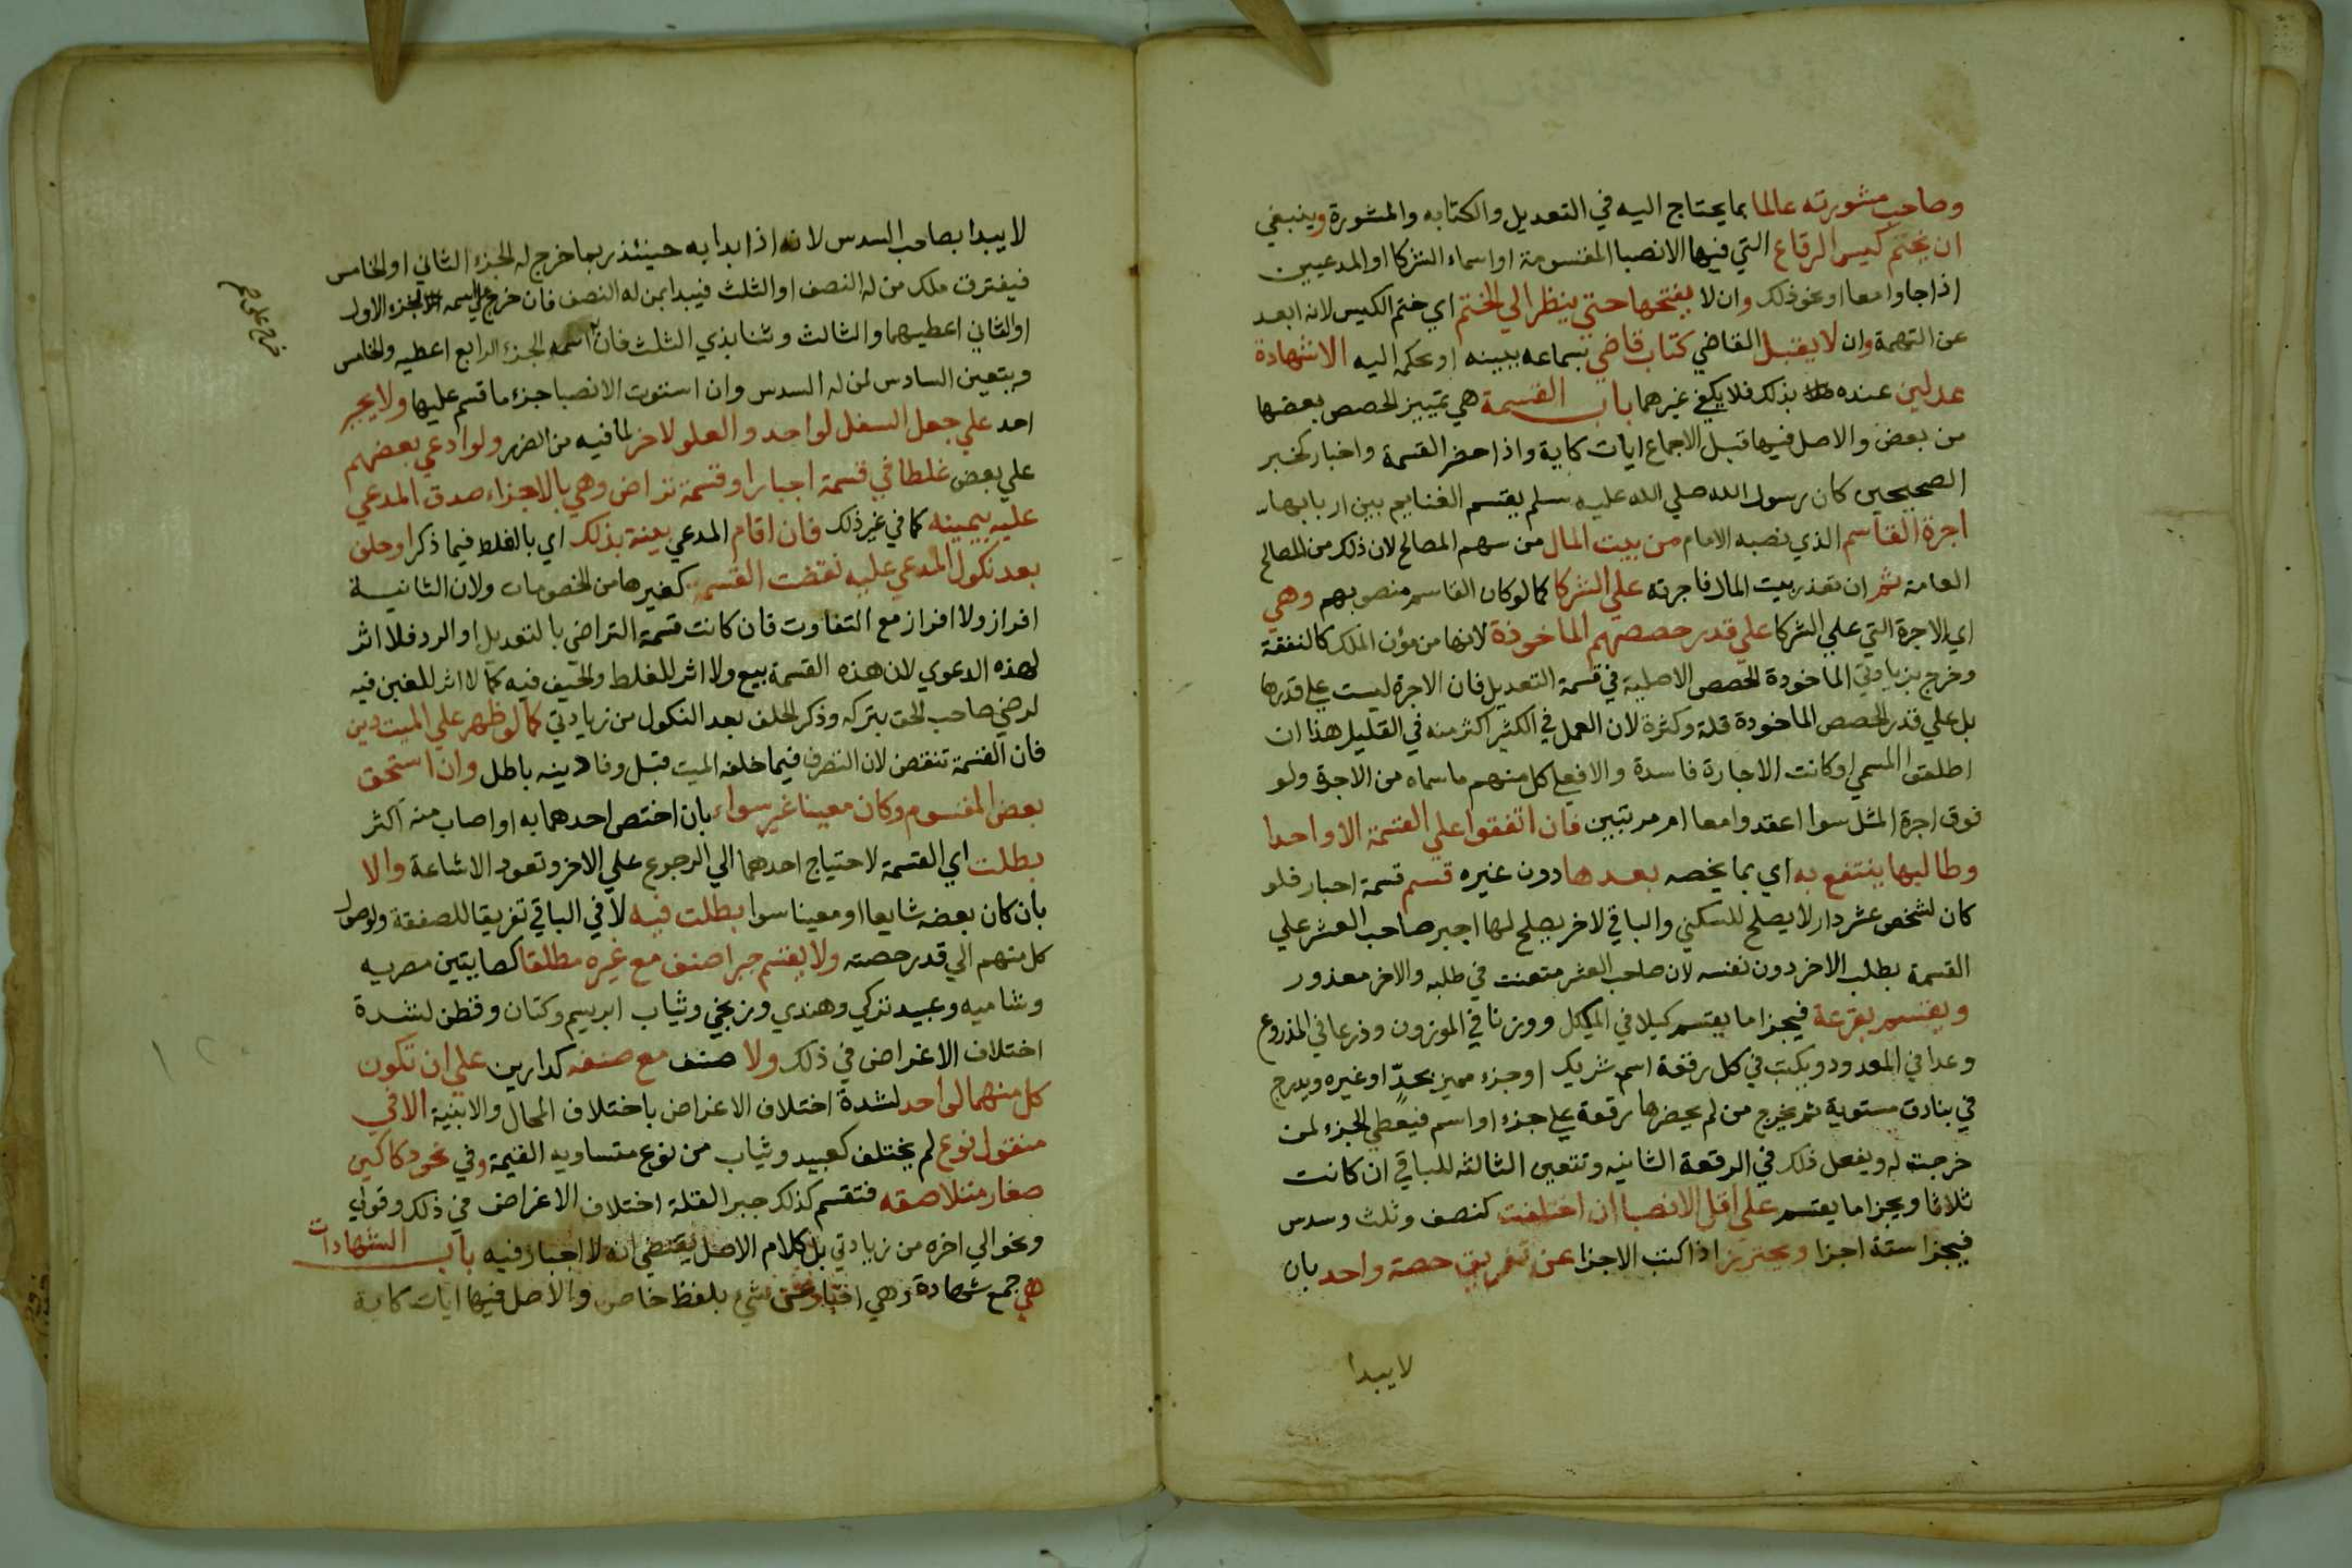 وصاحب مشورته عالما بما يحتاج اليه في التعديل والكتابه والمشورة وينبغي
ان يختم كيس الرقاع التي فيها الانصبا المقسومة او اسماء الشركا او المدعيين
اذا جاوا معا او نحو ذلك وان لا يفتحها حتي ينظر الي الختم اي ختم الكيس لانه ابعد
عن التهمة وان لا يقبل القاضي كتاب قاضي بسماعه ببينه او بحكمه اليه الا بشهادة
عدلين عنده بذلك فلا يكفي غيرهما باب القسمة هي تمييز الحصص بعضها
من بعض والاصل فيها قبل الاجماع ايات كاية واذا حضر القسمة واخبار كخبر
الصحيحين كان رسول الله صلي الله عليه وسلم يقسم الغنايم بين اربابها
اجرة القاسم الذي نصبه الامام من بيت المال من سهم المصالح لان ذلك من المصالح
العامة ثم ان تعذر بيت المال فاجرته علي الشركا كما لو كان القاسم منصوبهم وهي
اي الاجرة التي علي الشركا علي قدر حصصهم الماخوذة لانها من مؤن الملك كالنفقة
وخرج بزيادتي الماخودة الحصص الاصلية في قسمة التعديل فان الاجرة ليست علي قدرها
بل علي قدر الحصص الماخودة قلة وكثرة لان العمل في الكثير اكثر منه في القليل هذا ان
اطلقوا المسمي او كانت الاجارة فاسدة والا فعلي كل منهم ما سماه من الاجرة ولو
فوق اجرة المثل سوا اعقدوا معا ام مرتبين فان اتفقوا علي القسمة الا واحدا
وطالبها ينتفع به اي بما يخصه بعدها دون غيره قسم قسمة اجبار فلو
كان لشخص عشر دار لا يصلح للسكني والباقي لاخر يصلح لها اجبر صاحب العشر علي
القسمة بطلب الاخر دون نفسه لان صاحب العشر متعنت في طلبه والاخر معذور
ويقسم بقرعة فيجزا ما يقسم كيلا في المكيل ووزنا في الموزون وذرعا في المذروع
وعدا في المعدود ويكتب في كل رقعة اسم شريك او جزء مميز بحدّ او غيره ويدرج
في بنادق مستوية ثم يخرج من لم يحضرها رقعة علي جزء او اسم فيعطي الجزء لمن
خرجت له ويفعل ذلك في الرقعة الثانيه وتتعين الثالثه للباقي ان كانت
ثلاثا ويجزا ما يقسم علي اقل الانصبا ان اختلفت كنصف وثلث وسدس
فيجزا ستة اجزا ويحترز اذا كتب الاجزا عن تفريق حصة واحد بان
لا يبدا
لا يبدا بصاحب السدس لانه اذا بدا به حينئذ ربما خرج له الجزء الثاني او الخامس
فيفترق ملك من له النصف او الثلث فيبدا بمن له النصف فان خرج علي اسمه الجزء الاول
او الثاني اعطيهما والثالث وثنا بذي الثلث فان اسمه الجزء الرابع اعطيه والخامس
ويتعين السادس لمن له السدس وان استوت الانصبا جزء ما قسم عليها ولا يجبر
احد علي جعل السفل لواحد والعلو لاخر لما فيه من الضرر ولو ادعي بعضهم
علي بعض غلطا في قسمة اجبار او قسمة تراض وهي بالاجزاء صدق المدعي
عليه بيمينه كما في غير ذلك فان اقام المدعي بينة بذلك اي بالغلط فيما ذكر او حلف
بعد نكول المدعي عليه نقضت القسمة كغيرها من الخصومات ولان الثانية
افراز ولا افراز مع التفاوت فان كانت قسمة التراضي بالتعديل او الرد فلا اثر
لهذه الدعوي لان هذه القسمة بيع ولا اثر للغلط والحيف فيه كما لا اثر للغبن فيه
لرضي صاحب الحق بتركه وذكر الحلف بعد النكول من زيادتي كما لو ظهر علي الميت دين
فان القسمة تنقض لان التصرف فيما خلفه الميت قبل وفا دينه باطل وان استحق
بعض المقسوم وكان معينا غير سواء بان اختص احدهما به او اصاب منه اكثر
بطلت اي القسمة لاحتياج احدهما الي الرجوع علي الاخر وتعود الاشاعة والا
بأن كان بعضه شايعا او معينا سوا بطلت فيه لا في الباقي تفريقا للصفقة ولوصول
كل منهم الي قدر حصته ولا يقسم جبرا صنف مع غيره مطلقا كصابتين مصريه
وشاميه وعبيد تركي وهندي وزنجي وثياب ابريسم وكتان وقطن لشدة
اختلاف الاغراض في ذلك ولا صنف مع صنفه كدارين علي ان تكون
كل منهما لواحد لشدة اختلاف الاغراض باختلاف المحال والابنية الا في
منقول نوع لم يختلف كعبيد وثياب من نوع متساويه القيمة وفي نحو دكاكين
صغار متلاصقه فتقسم كذلك جبرا لقلة اختلاف الاغراض في ذلك وقولي
ونحو الي اخره من زيادتي بل كلام الاصل يقتضي انه لا اجبار فيه باب الشهادات
هي جمع شهادة وهي اخبار عن شيء بلفظ خاص والاصل فيها ايات كاية